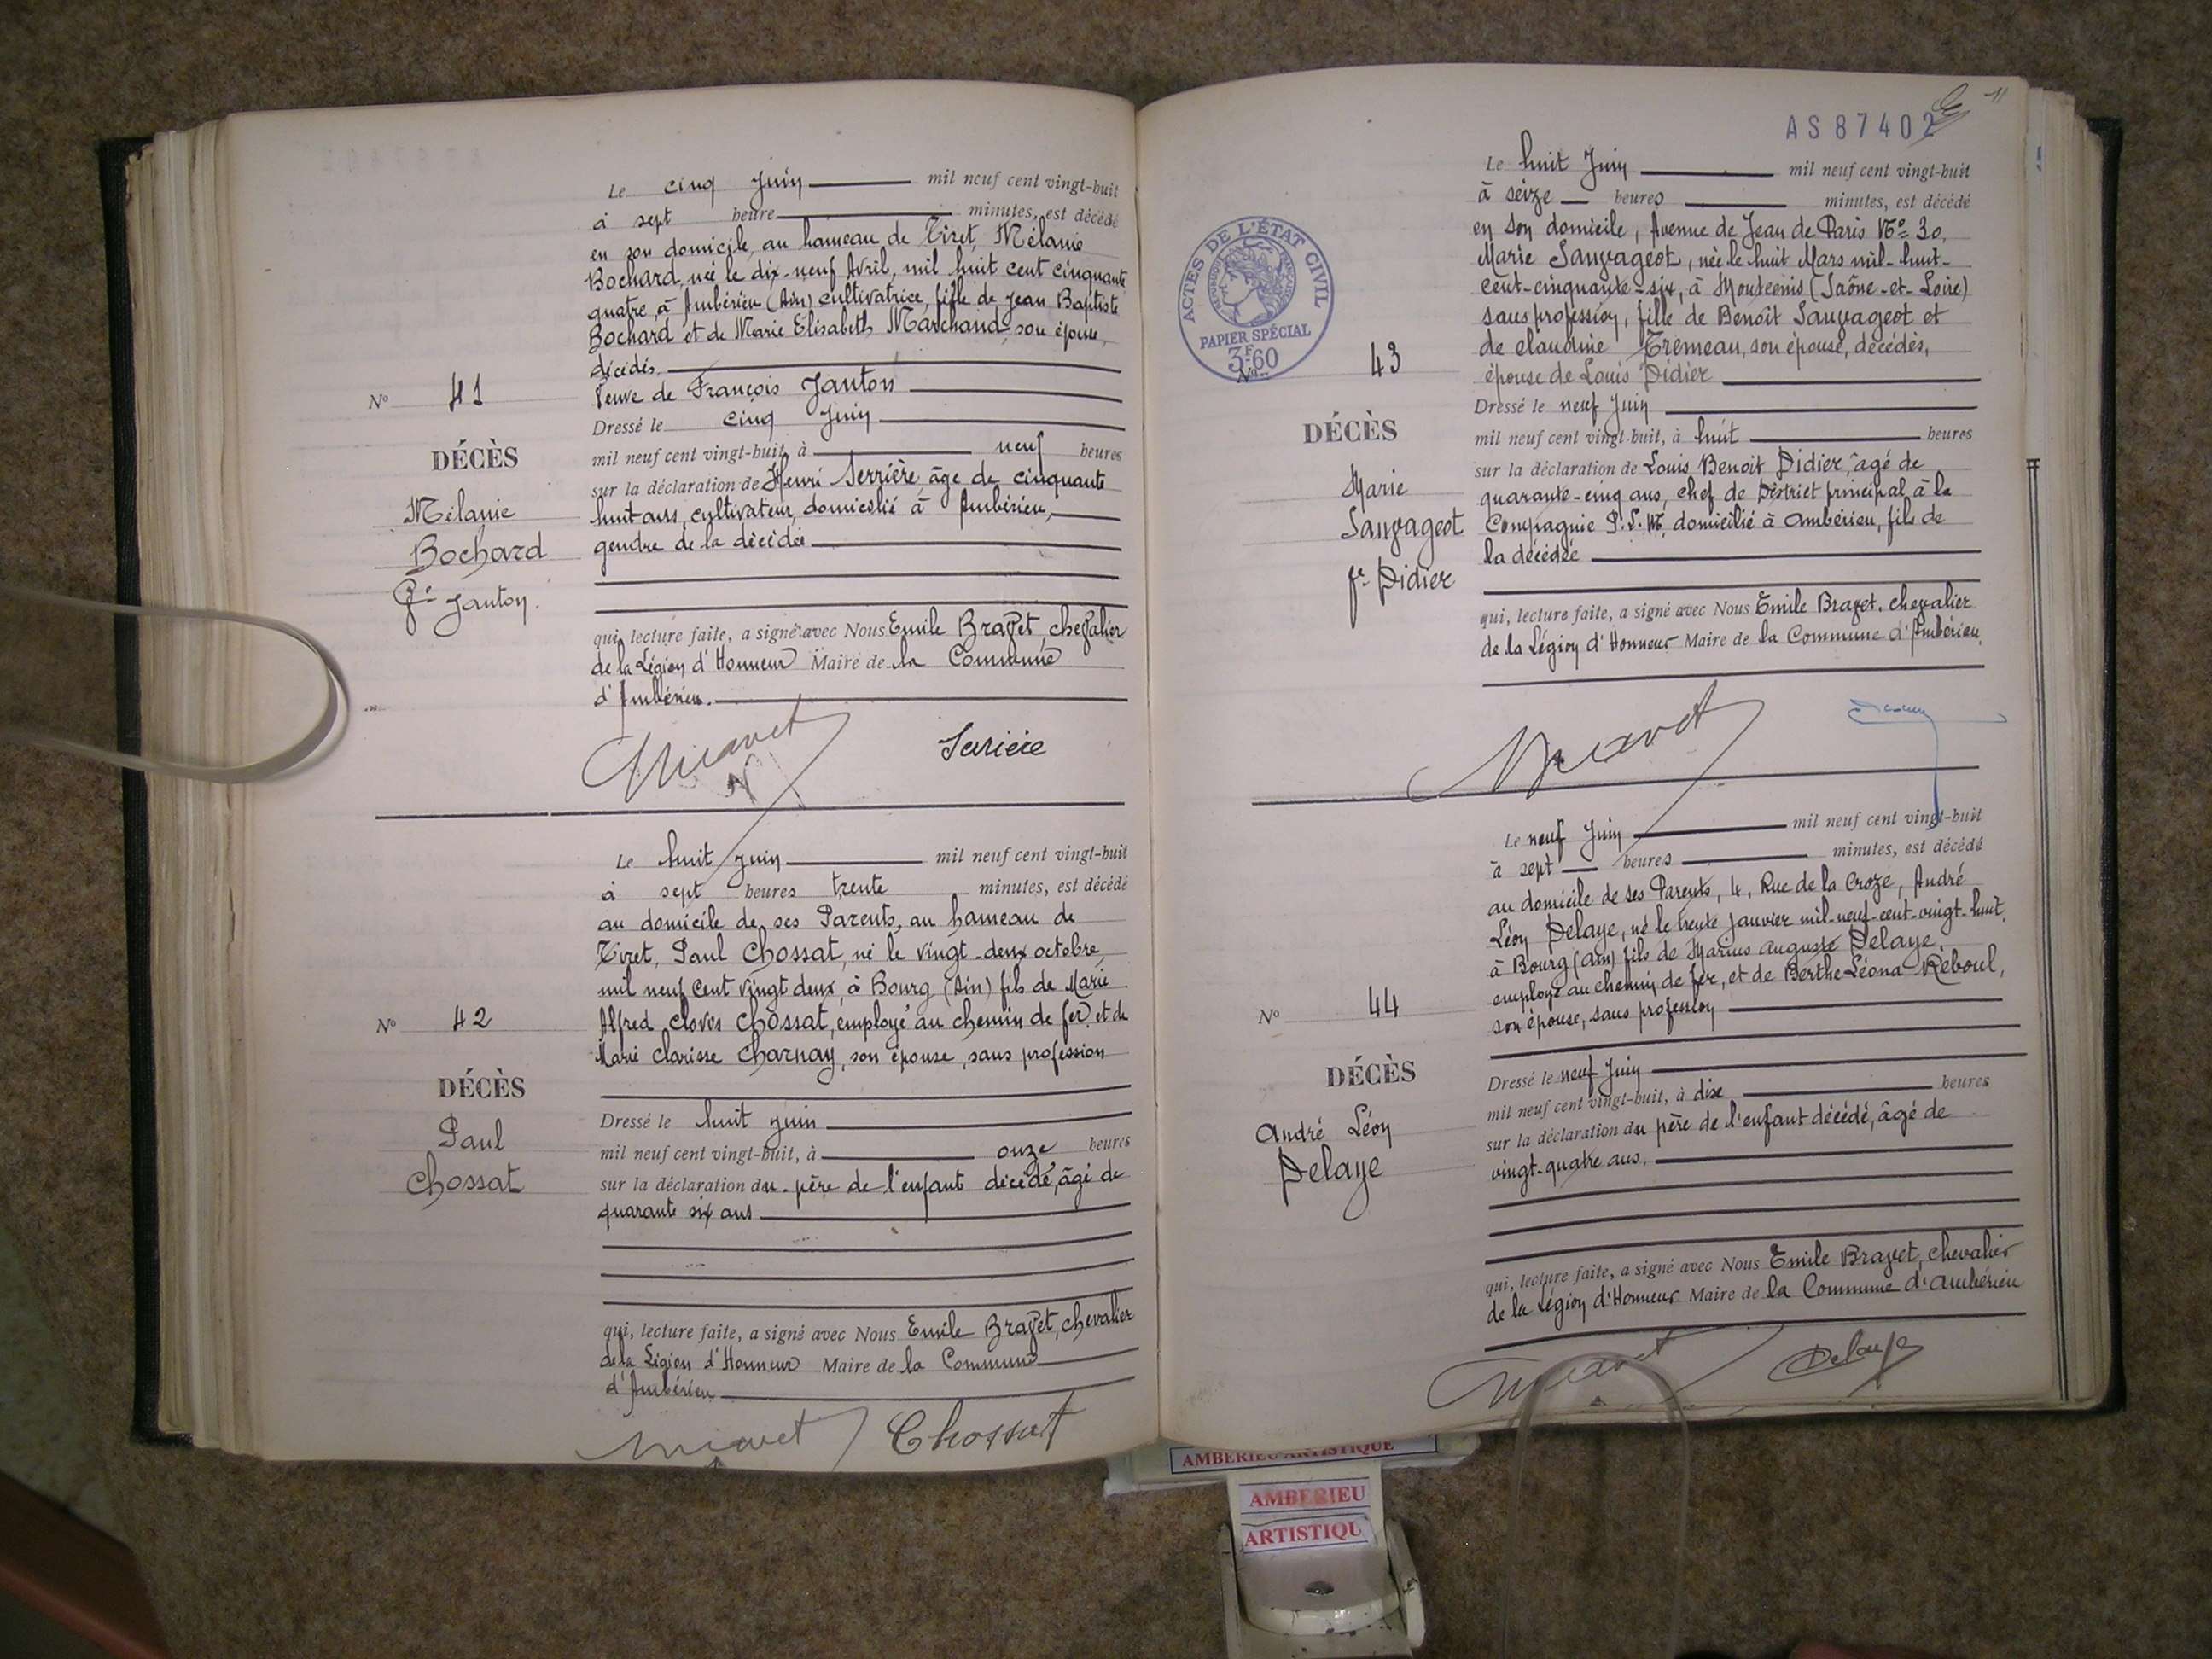 Le cinq Juin mil neuf cent vingt-huit
à sept heure minutes, est décédé
en son domicile, au hameau de Tiret, Mélanie
Bochard, née le dix-neuf Avril, mil huit cent cinquante
quatre, à Ambérieu (Ain) cultivatrice, fille de Jean Baptiste
Bochard et de Marie Elisabeth Marchand, son épouse,
décédés.
Veuve de François Janton
Nº 41
Dressé le cinq Juin
mil neuf cent vingt-huit, à neuf heures
DÉCÈS
sur la déclaration de Henri Serrière, âgé de cinquante
Mélanie
huit ans, cultivateur, domicilié à Ambérieu,
Bochard
gendre de la décédée
Vve Janton.
qui, lecture faite, a signé avec Nous Emile Bravet, chevalier
de la Légion d'Honneur Maire de la Commune
d'Ambérieu.
Bravet Serière
Le huit juin mil neuf cent vingt-huit
à sept heures trente minutes, est décédé
au domicile de ses Parents, au hameau de
Tiret, Paul Chossat, né le vingt-deux octobre,
mil neuf cent vingt deux, à Bourg (Ain) fils de Marie
Nº 42
Alfred Clovis Chossat, employé au chemin de fer, et de
Marie Clarisse Charnay, son épouse, sans profession
DÉCÈS
Dressé le huit juin
Paul
mil neuf cent vingt-huit, à onze heures
Chossat
sur la déclaration du père de l'enfant décédé, âgé de
quarante six ans
qui, lecture faite, a signé avec Nous Emile Bravet, chevalier
de la Légion d'Honneur Maire de la Commune
d'Ambérieu
Bravet Chossat
AS 87402
ACTES DE L'ÉTAT CIVIL
RÉPUBLIQUE FRANÇAISE
PAPIER SPÉCIAL
3F.60
Le huit Juin mil neuf cent vingt-huit
à seize heures minutes, est décédé
en son domicile, Avenue de Jean de Paris Nº 30.
Marie Sauvageot, née le huit Mars mil-huit-
cent-cinquante-six, à Montcenis (Saône-et-Loire)
sans profession, fille de Benoît Sauvageot et
de Claudine Trémeau, son épouse, décédés,
épouse de Louis Didier
Nº 43
Dressé le neuf Juin
DÉCÈS
mil neuf cent vingt-huit, à huit heures
sur la déclaration de Louis Benoit Didier, âgé de
Marie
quarante-cinq ans, chef de District principal à la
Sauvageot
Compagnie P.L.M, domicilié à Ambérieu, fils de
la décédée
fe Didier
qui, lecture faite, a signé avec Nous Emile Bravet, chevalier
de la Légion d'Honneur Maire de la Commune d'Ambérieu.
Bravet
Le neuf Juin mil neuf cent vingt-huit
à sept heures minutes, est décédé
au domicile de ses Parents, 4, Rue de la Croze, André
Léon Delaye, né le trente Janvier mil-neuf-cent-vingt-huit,
à Bourg (Ain) fils de Marius Auguste Delaye,
employé au chemin de fer, et de Berthe Léona Reboul,
son épouse, sans profession
Nº 44
DÉCÈS
Dressé le neuf Juin
mil neuf cent vingt-huit, à dix heures
André Léon
sur la déclaration du père de l'enfant décédé, âgé de
Delaye
vingt-quatre ans.
qui, lecture faite, a signé avec Nous Emile Bravet, chevalier
de la Légion d'Honneur Maire de la Commune d'Ambérieu
Bravet Delaye
AMBERIEU ARTISTIQUE
AMBERIEU
ARTISTIQU